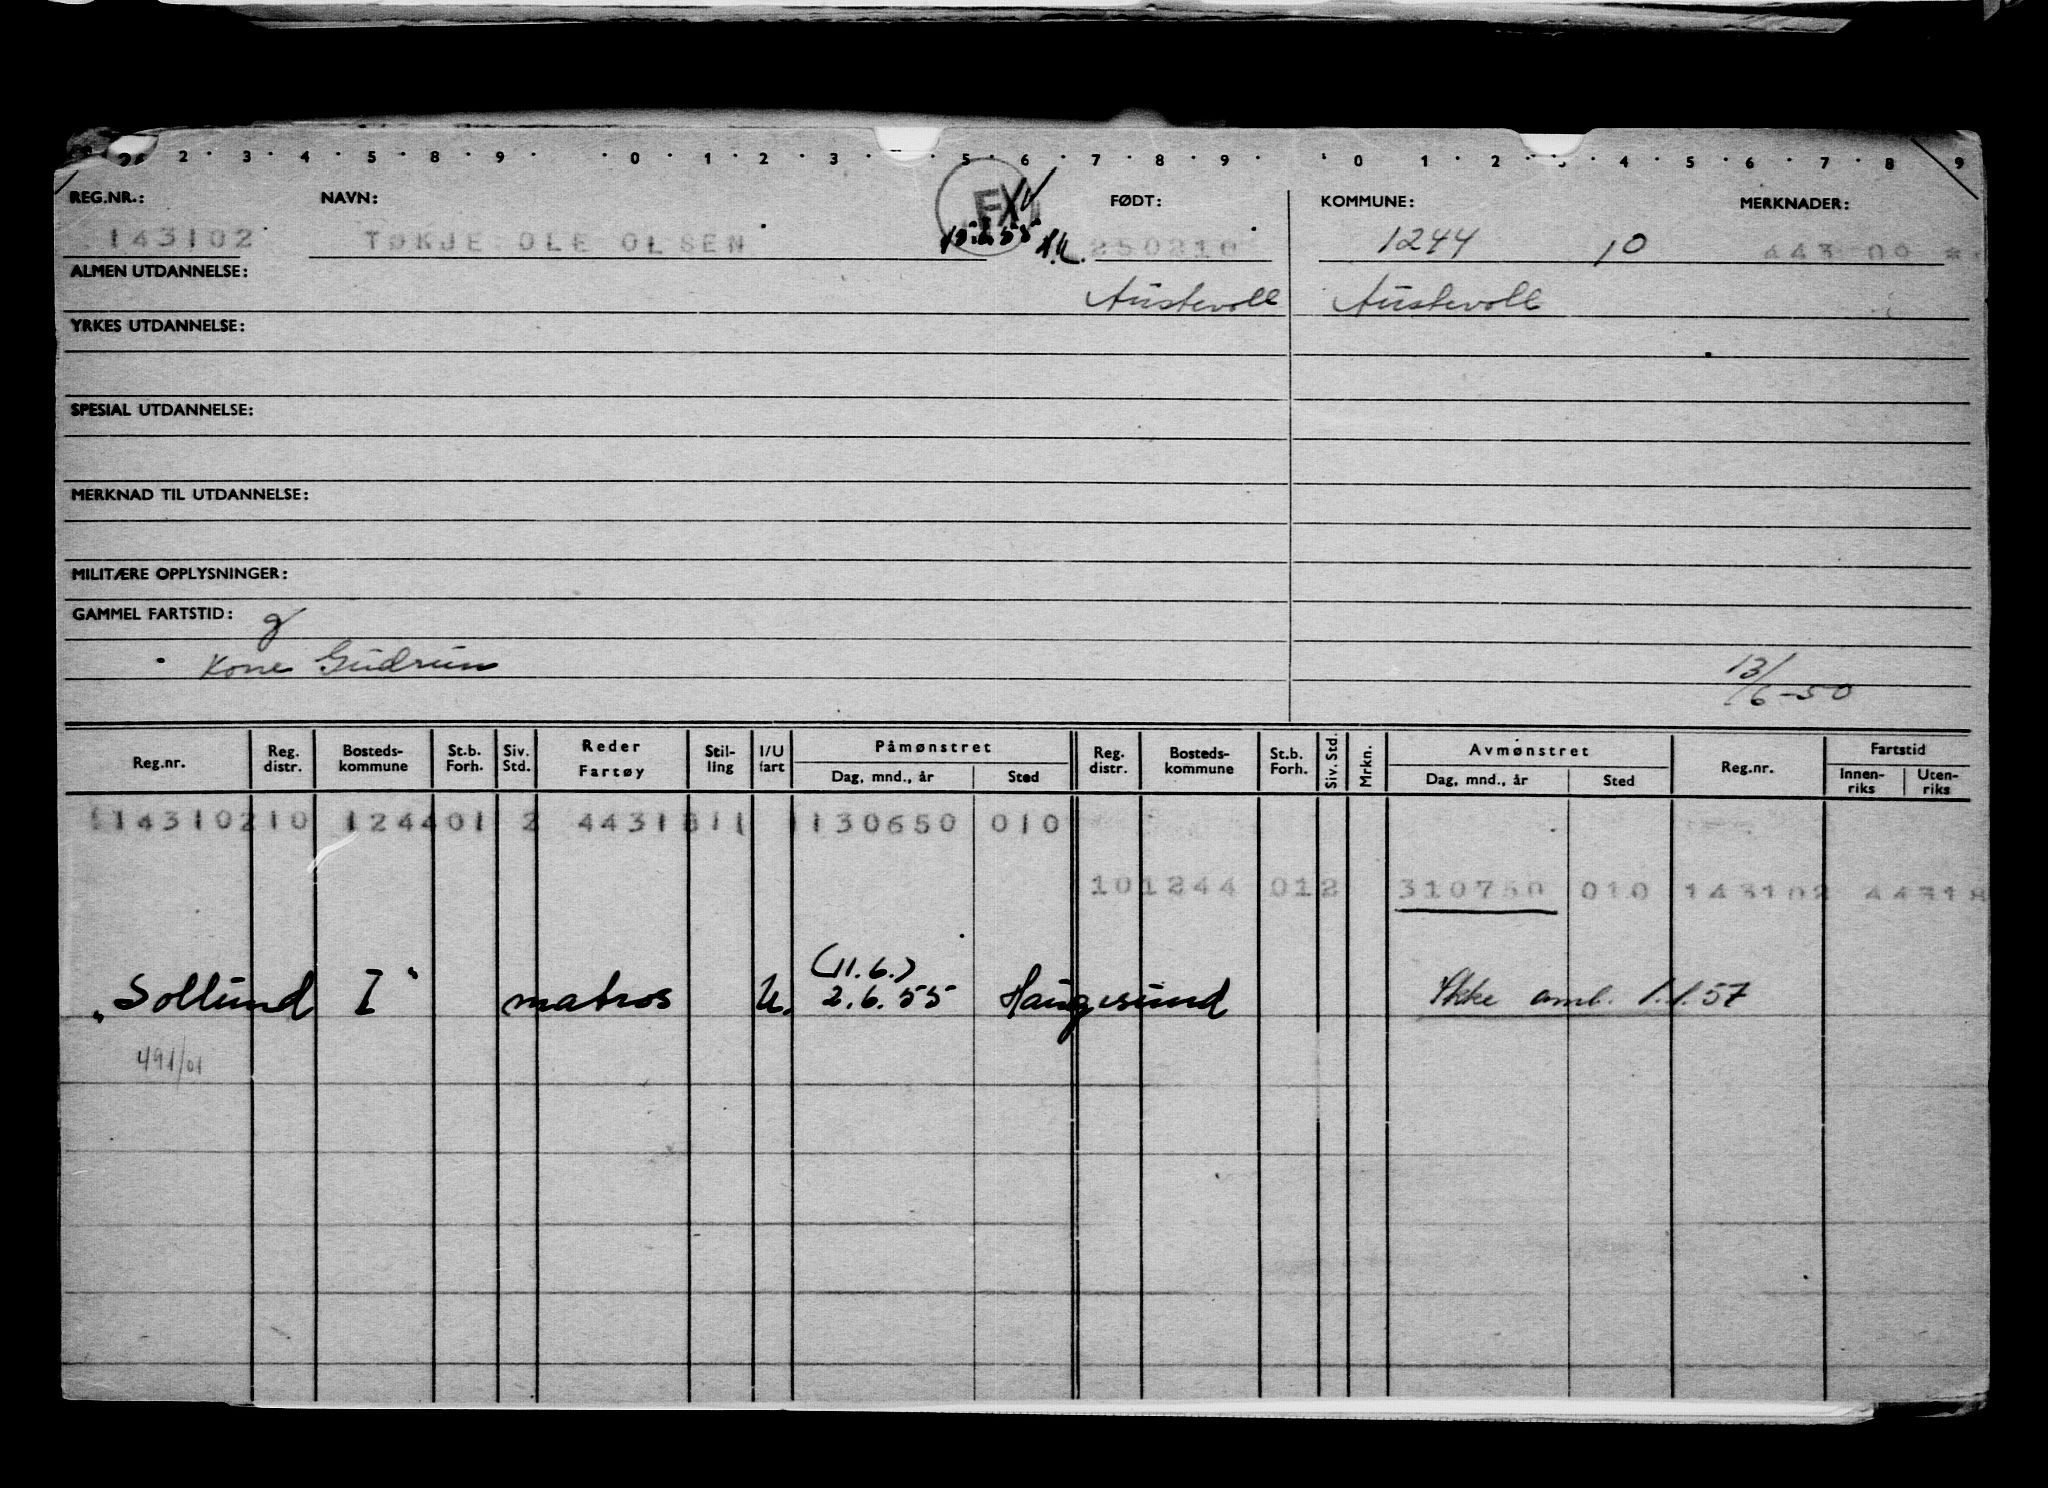 2 3 4 5 8 9 0 1 2 3 5 6 7 8 9 0 1 2 3 4 5 6 7 8 9
REG.NR.: NAVN: FØDT: KOMMUNE: MERKNADER:
143102 TØKJE OLE OLSEN 250210 1244 10 443 09 *
ALMEN UTDANNELSE: Austevoll Austevoll
YRKES UTDANNELSE:
SPESIAL UTDANNELSE:
MERKNAD TIL UTDANNELSE:
MILITÆRE OPPLYSNINGER:
GAMMEL FARTSTID: g
Kone Gudrun 13/6-50
Reg.nr. Reg. distr. Bosteds-kommune St.b. Forh. Siv. Std. Reder Fartøy Stil-ling I/U fart Påmønstret Dag, mnd., år Sted Reg. distr. Bosteds-kommune St.b. Forh. Siv. Std. Mrkn. Avmønstret Dag, mnd., år Sted Reg.nr. Fartstid Innen-riks Uten-riks
143102 10 1244 01 2 4431811 1 130650 010
10 1244 01 2 310750 010 143102 44318
(11.6.)
"Sollund I" matros U. 2.6.55 Haugesund Ikke anb. 1.1.57
491/01